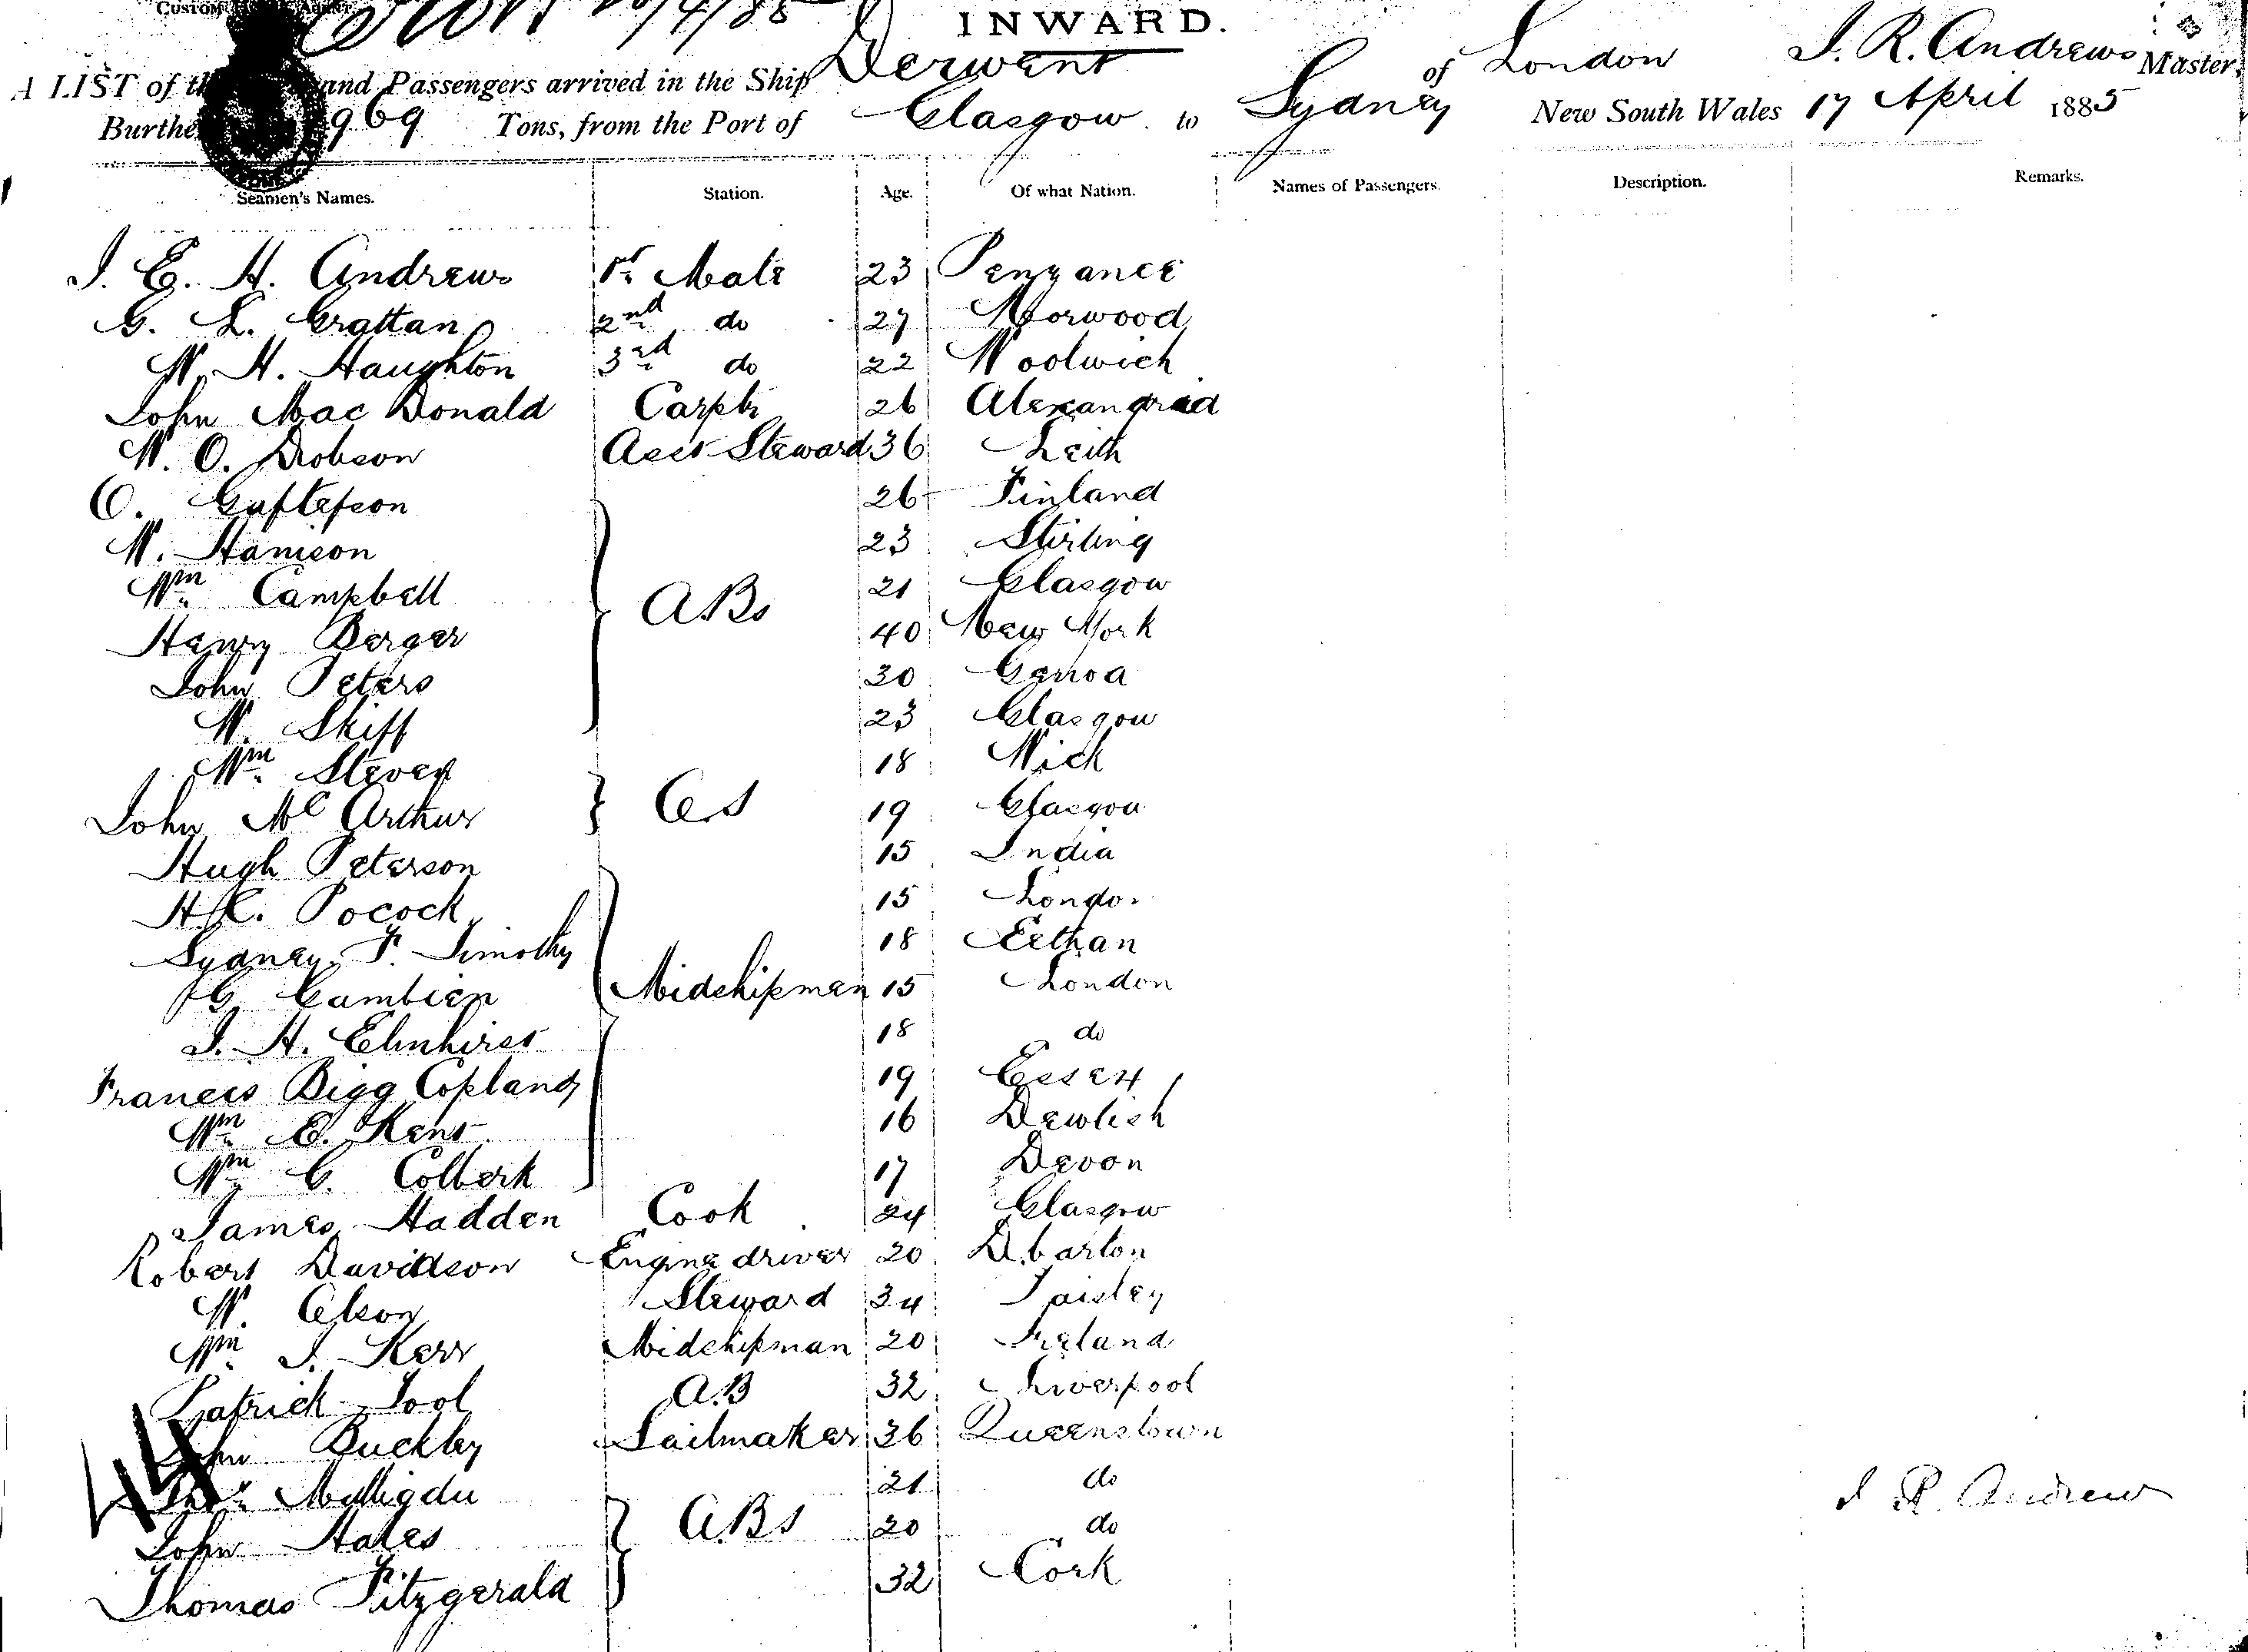 CUSTOM
INWARD.
A LIST of the and Passengers arrived in the Ship Derwent of London J. R. Andrews Master,
Burthen 1969 Tons, from the Port of Glasgow to Sydney New South Wales 17 April 1885
Seamen's Names. Station. Age. Of what Nation. Names of Passengers. Description. Remarks.
J. E. H. Andrews 1st Mate 23 Penzance
G. L. Grattan 2nd do 27 Norwood
W. H. Haughton 3rd do 22 Woolwich
John Mac Donald Carptr 26 Alexandria
W. O. Dobson Asst Steward 36 Leith
O. Gustafson 26 Finland
W. Hanson 23 Stirling
Wm Campbell ABs 21 Glasgow
Henry Berger 40 New York
John Peters 30 Genoa
W. Skiff 23 Glasgow
Wm Steven 18 Wick
John McArthur OS 19 Glasgow
Hugh Peterson 15 India
H. C. Pocock 15 London
Sydney F. Timothy 18
G. Gambier Midshipmen 15 London
J. H. Elmhirst 18 do
Francis Bigg Copland 19 Essex
Wm E. Kent 16 Dawlish
Wm C. Colbeck 17 Devon
James Hadden Cook 24 Glasgow
Robert Davidson Engine driver 20 D.barton
W. Olson Steward 34 Paisley
Wm J. Kerr Midshipman 20 Ireland
Patrick Tool A.B 32 Liverpool
John Buckley Sailmaker 36 Queenstown
21 do
John Hales ABs 20 do
Thomas Fitzgerald 32 Cork
44
J R. Andrew